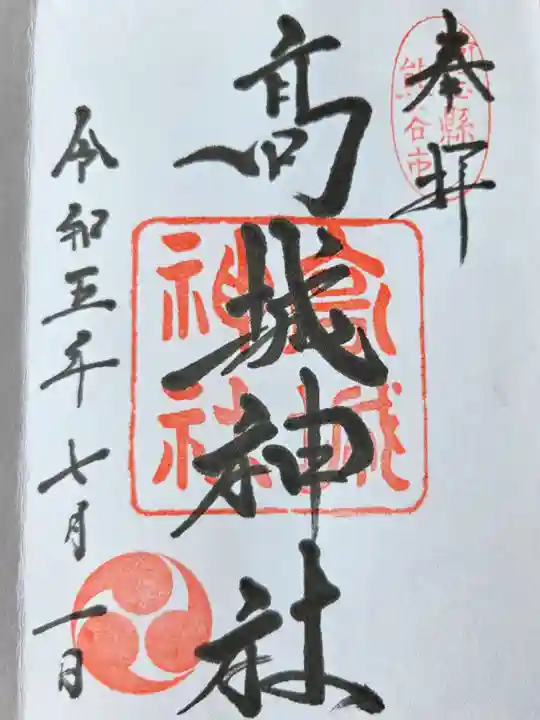 奉拝
埼玉縣
熊谷市
髙城神社
高城
神社
令和五年七月一日